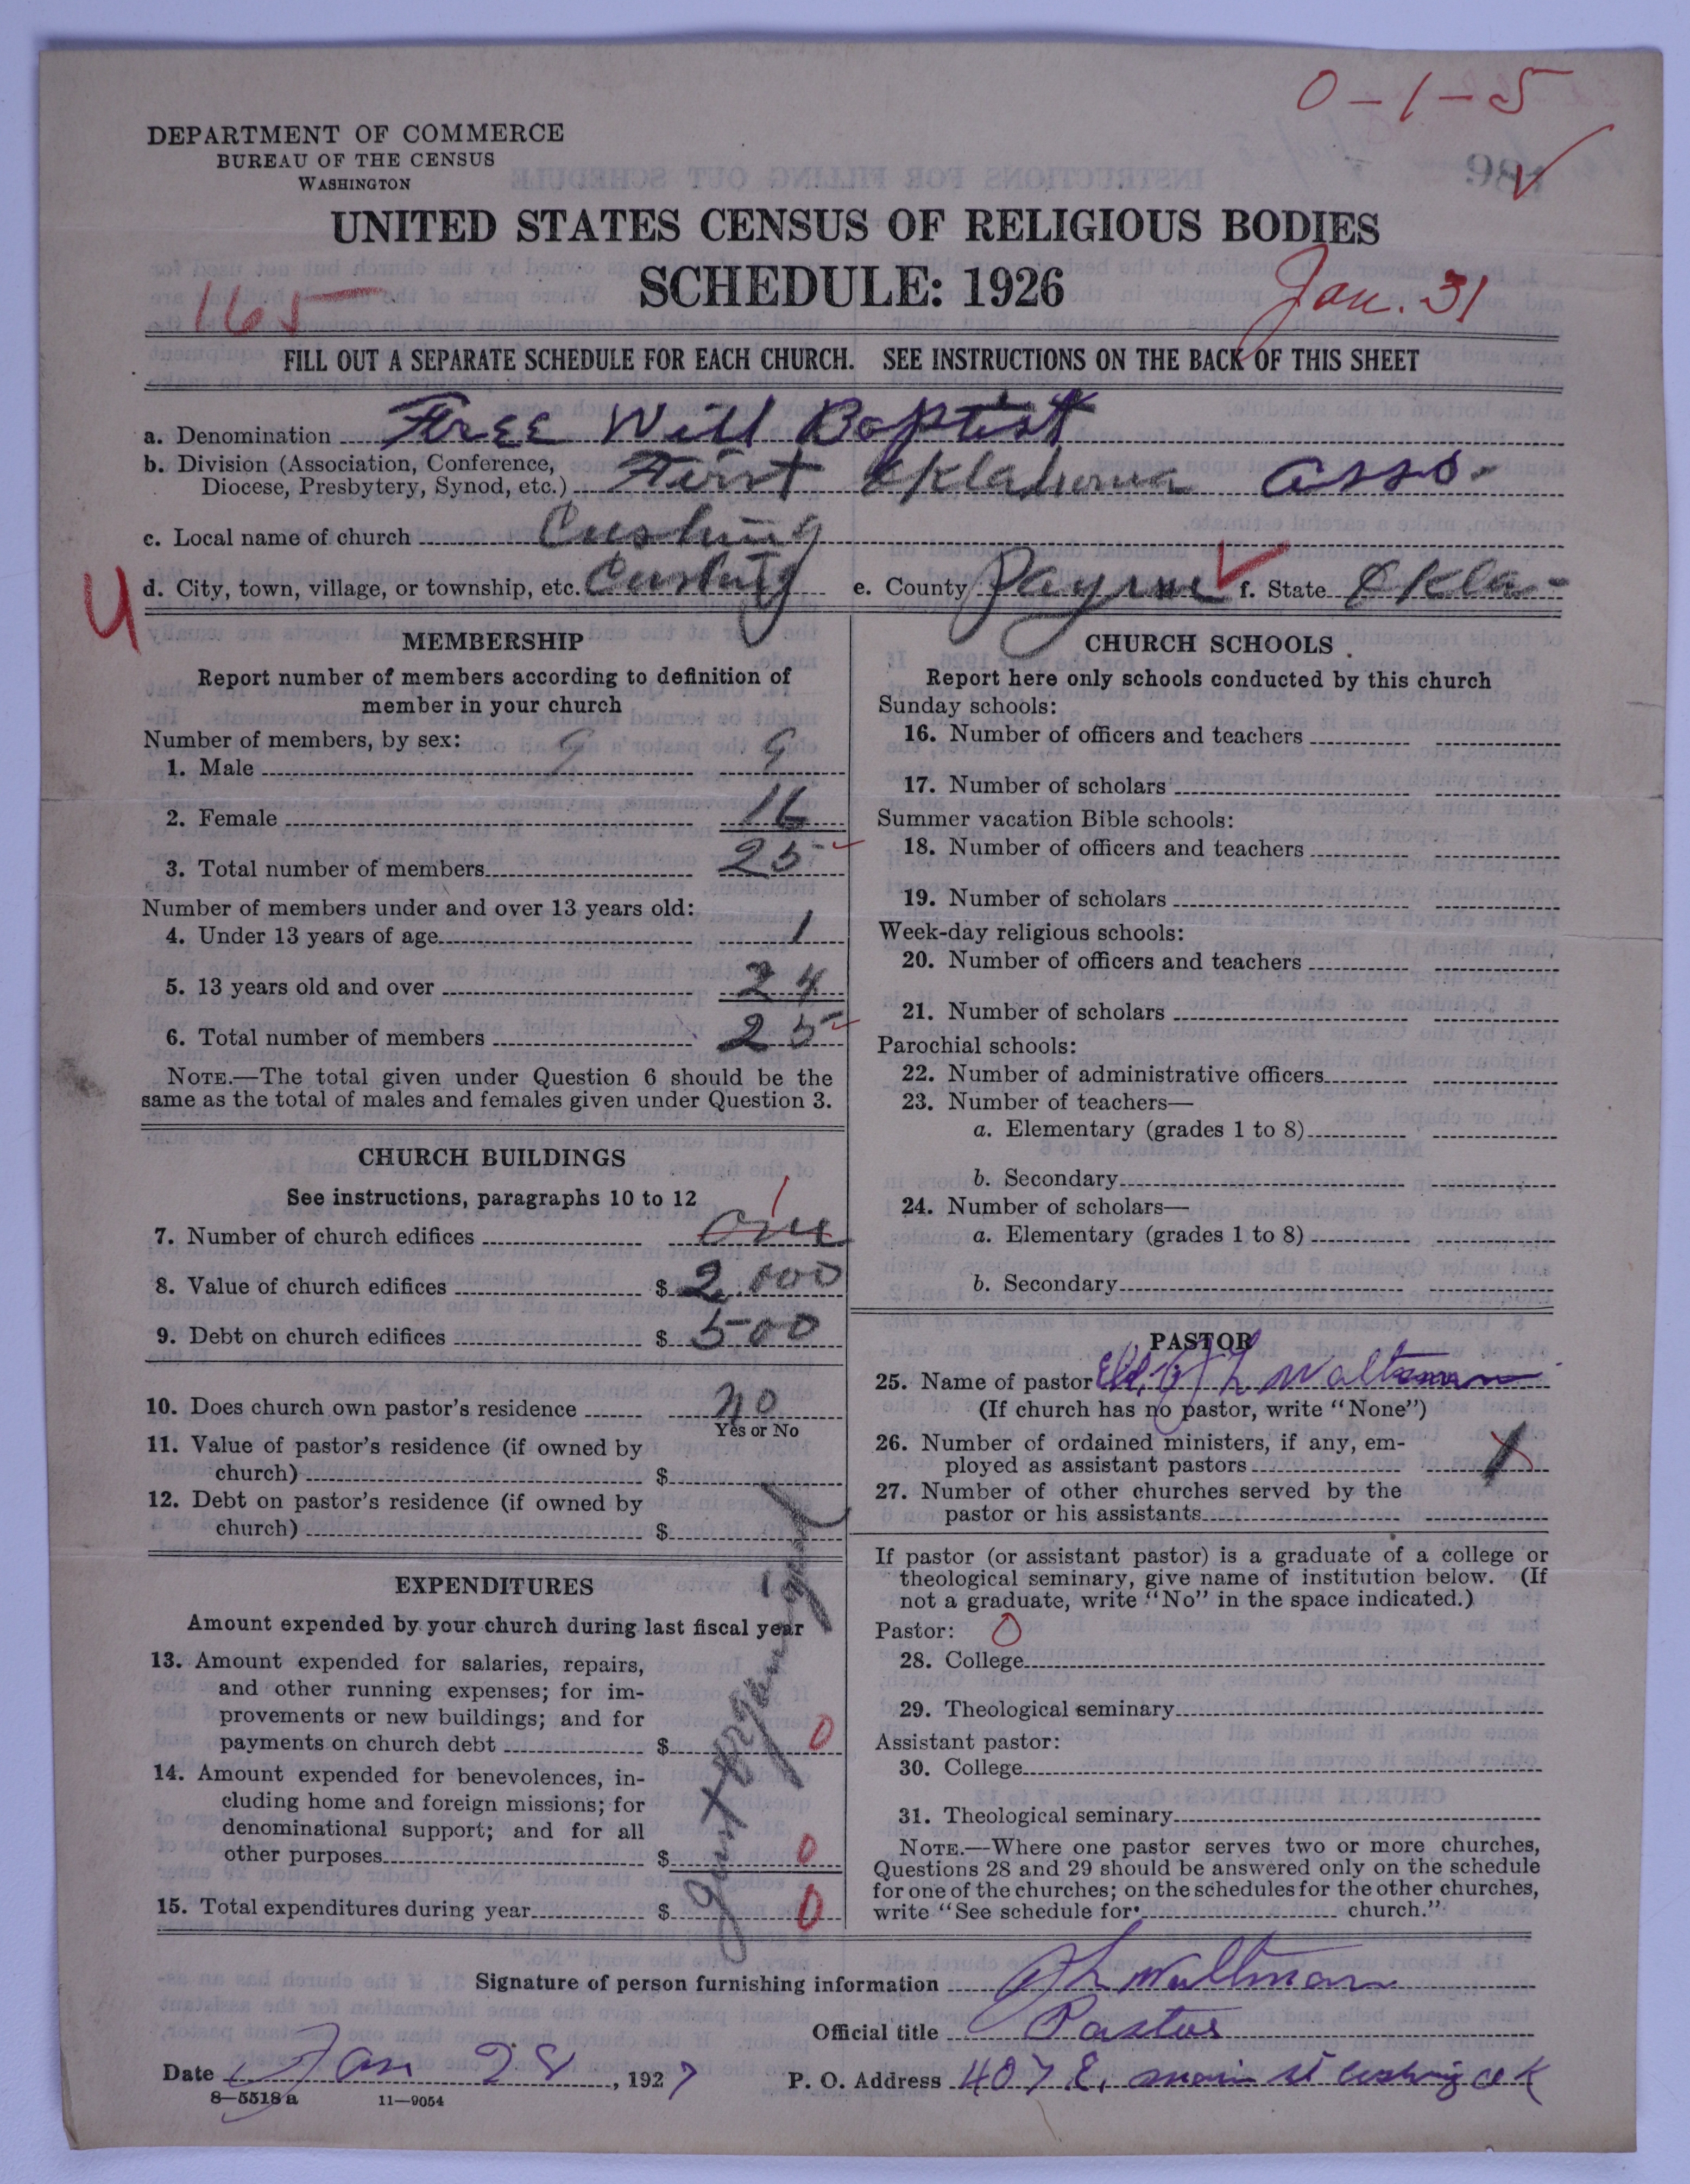 0-1-5
DEPARTMENT OF COMMERCE
BUREAU OF THE CENSUS
WASHINGTON
UNITED STATES CENSUS OF RELIGIOUS BODIES
SCHEDULE: 1926
165
Jan. 31
FILL OUT A SEPARATE SCHEDULE FOR EACH CHURCH. SEE INSTRUCTIONS ON THE BACK OF THIS SHEET
a. Denomination Free Will Baptist
b. Division (Association, Conference,
Diocese, Presbytery, Synod, etc.) First Oklahoma Asso.
c. Local name of church Cushing
4
d. City, town, village, or township, etc. Cushing e. County Payne f. State Okla-
MEMBERSHIP
Report number of members according to definition of
member in your church
Number of members, by sex:
1. Male 9 9
2. Female 16
3. Total number of members 25
Number of members under and over 13 years old:
4. Under 13 years of age 1
5. 13 years old and over 24
6. Total number of members 25
NOTE.—The total given under Question 6 should be the
same as the total of males and females given under Question 3.
CHURCH BUILDINGS
See instructions, paragraphs 10 to 12
1
7. Number of church edifices one
8. Value of church edifices $ 2.000
9. Debt on church edifices $ 500
10. Does church own pastor's residence no
Yes or No
11. Value of pastor's residence (if owned by
church) $
12. Debt on pastor's residence (if owned by
church) $
EXPENDITURES
Amount expended by your church during last fiscal year
13. Amount expended for salaries, repairs,
and other running expenses; for im-
provements or new buildings; and for
payments on church debt $ 0
14. Amount expended for benevolences, in-
cluding home and foreign missions; for
denominational support; and for all
other purposes $ 0
15. Total expenditures during year $ 0
CHURCH SCHOOLS
Report here only schools conducted by this church
Sunday schools:
16. Number of officers and teachers
17. Number of scholars
Summer vacation Bible schools:
18. Number of officers and teachers
19. Number of scholars
Week-day religious schools:
20. Number of officers and teachers
21. Number of scholars
Parochial schools:
22. Number of administrative officers
23. Number of teachers—
a. Elementary (grades 1 to 8)
b. Secondary
24. Number of scholars—
a. Elementary (grades 1 to 8)
b. Secondary
PASTOR
25. Name of pastor Eld. J L Waltman
(If church has no pastor, write "None")
26. Number of ordained ministers, if any, em-
ployed as assistant pastors 1
27. Number of other churches served by the
pastor or his assistants
If pastor (or assistant pastor) is a graduate of a college or
theological seminary, give name of institution below. (If
not a graduate, write "No" in the space indicated.)
Pastor: 0
28. College
29. Theological seminary
Assistant pastor:
30. College
31. Theological seminary
NOTE.—Where one pastor serves two or more churches,
Questions 28 and 29 should be answered only on the schedule
for one of the churches; on the schedules for the other churches,
write "See schedule for church."
Signature of person furnishing information J L Waltman
Official title Pastor
Date Jan 28, 1927 P. O. Address 407 E. main st cushing ok
8—5518a 11—9054